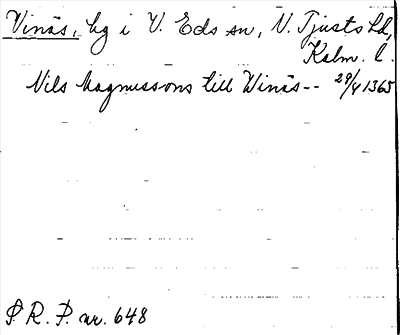 Vinäs, hg i V. Eds sn, N. Tjusts hd,
Kalm. l.
Nils Magnussons till Winäs-- 29/4 1365
P. R. P. nr. 648